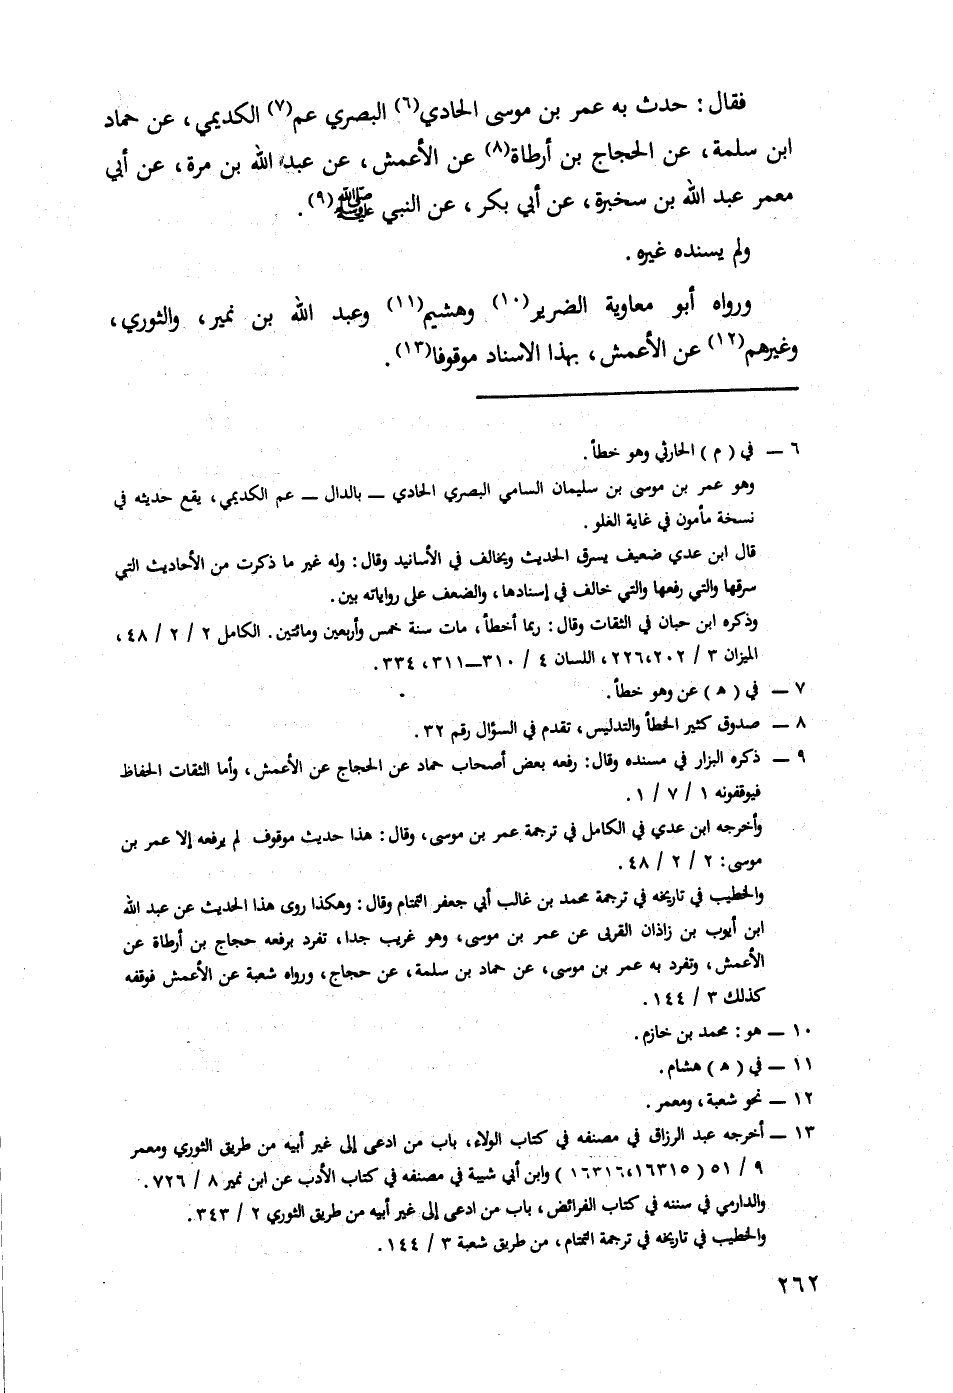 فقال : حدث به عمر بن موسى الحادي(٦) البصري عم(٧) الكديمي ، عن حماد
ابن سلمة ، عن الحجاج بن أرطاة(٨) عن الأعمش ، عن عبد الله بن مرة ، عن أبي
معمر عبد الله بن سخبرة ، عن أبي بكر ، عن النبي ﷺ(٩) .
ولم يسنده غيره .
ورواه أبو معاوية الضرير(١٠) وهشيم(١١) وعبد الله بن نمير ، والثوري ،
وغيرهم(١٢) عن الأعمش ، بهذا الاسناد موقوفا(١٣) .
٦ ــ في ( م ) الحارثي وهو خطأ .
وهو عمر بن موسى بن سليمان السامي البصري الحادي ــ بالدال ــ عم الكديمي ، يقع حديثه في
نسخة مأمون في غاية الغلو .
قال ابن عدي ضعيف يسرق الحديث ويخالف في الأسانيد وقال : وله غير ما ذكرت من الأحاديث التي
سرقها والتي رفعها والتي خالف في إسنادها ، والضعف على رواياته بين .
وذكره ابن حبان في الثقات وقال : ربما أخطأ ، مات سنة خمس وأربعين ومائتين . الكامل ٢ / ٢ / ٤٨ ،
الميزان ٣ / ٢٠٢،٢٢٦ ، اللسان ٤ / ٣١٠ــ٣١١ ، ٣٣٤ .
٧ ــ في ( ه ) عن وهو خطأ .
٨ ــ صدوق كثير الخطأ والتدليس ، تقدم في السؤال رقم ٣٢ .
٩ ــ ذكره البزار في مسنده وقال : رفعه بعض أصحاب حماد عن الحجاج عن الأعمش ، وأما الثقات الحفاظ
فيوقفونه ١ / ٧ / ١ .
وأخرجه ابن عدي في الكامل في ترجمة عمر بن موسى ، وقال : هذا حديث موقوف لم يرفعه إلا عمر بن
موسى : ٢ / ٢ / ٤٨ .
والخطيب في تاريخه في ترجمة محمد بن غالب أبي جعفر التمتام وقال : وهكذا روى هذا الحديث عن عبد الله
ابن أيوب بن زاذان القربى عن عمر بن موسى ، وهو غريب جدا ، تفرد برفعه حجاج بن أرطاة عن
الأعمش ، وتفرد به عمر بن موسى ، عن حماد بن سلمة ، عن حجاج ، ورواه شعبة عن الأعمش فوقفه
كذلك ٣ / ١٤٤ .
١٠ ــ هو : محمد بن خازم .
١١ ــ في ( ه ) هشام .
١٢ ــ نحو شعبة ، ومعمر .
١٣ ــ أخرجه عبد الرزاق في مصنفه في كتاب الولاء ، باب من ادعى إلى غير أبيه من طريق الثوري ومعمر
٩ / ٥١ ( ١٦٣١٥،١٦٣١٦ ) وابن أبي شيبة في مصنفه في كتاب الأدب عن ابن نمير ٨ / ٧٢٦ .
والدارمي في سننه في كتاب الفرائض ، باب من ادعى إلى غير أبيه من طريق الثوري ٢ / ٣٤٣ .
والخطيب في تاريخه في ترجمة التمتام ، من طريق شعبة ٣ / ١٤٤ .
٢٦٢